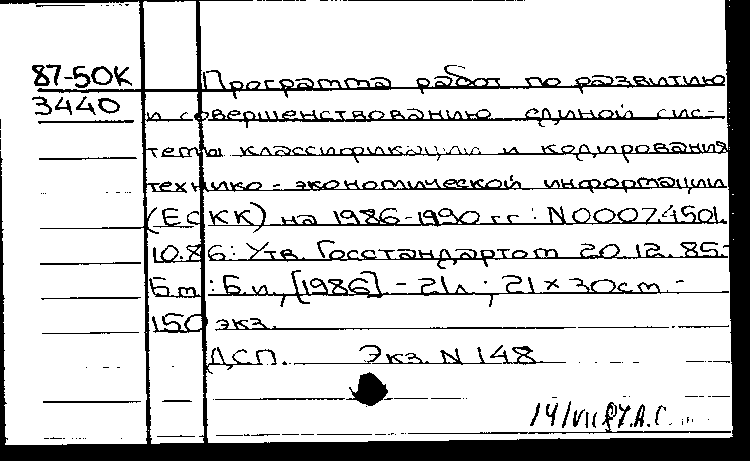 87-5ОК
3440
Программа работ по развитию
и совершенствованию единой сис-
темы классификации и кодирования
технико-экономической информации
(ЕСКК) на 1986-1990 гг: N0007.4501.
10.86: Утв. Госстандартом 20.12.85.-
Б.м: Б.и, [1986] - 21л; 21 × 30см -
150 экз.
ДСП. Экз. N 148
14/VII 87. А.С.